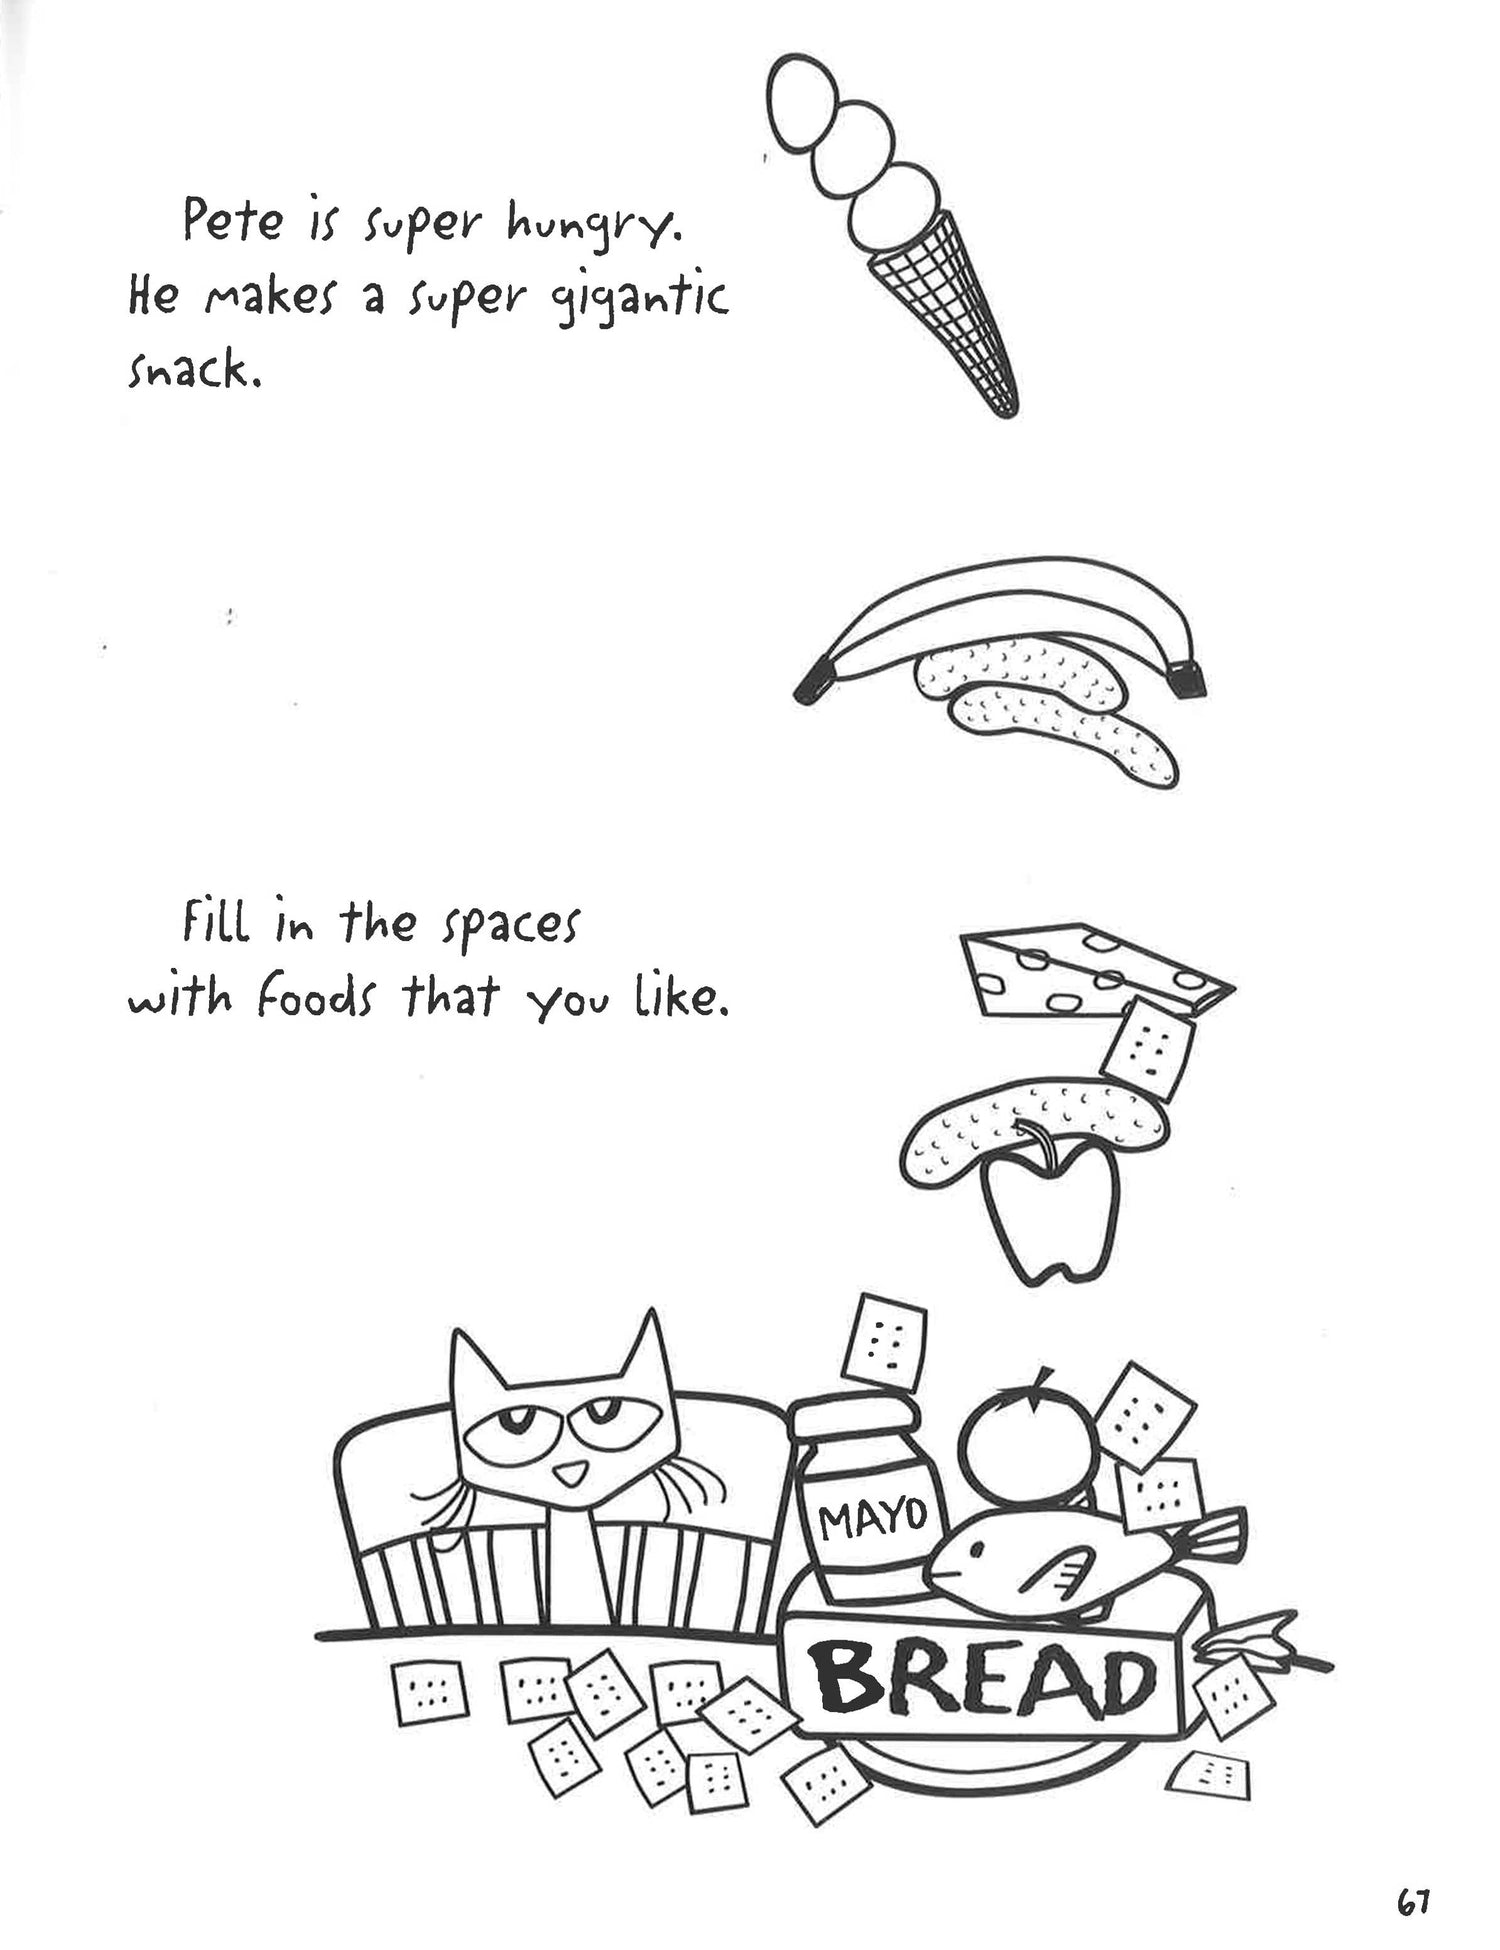 Pete is super hungry.
He makes a super gigantic
snack.
Fill in the spaces
with foods that you like.
MAYO
BREAD
67